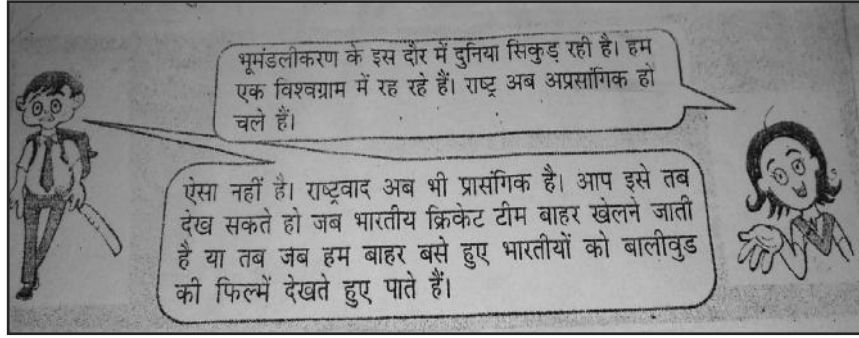 भूमंडलीकरण के इस दौर में दुनिया सिकुड़ रही है। हम
एक विश्वग्राम में रह रहे हैं। राष्ट्र अब अप्रसांगिक हो
चले हैं।
ऐसा नहीं है। राष्ट्रवाद अब भी प्रासंगिक है। आप इसे तब
देख सकते हो जब भारतीय क्रिकेट टीम बाहर खेलने जाती
है या तब जब हम बाहर बसे हुए भारतीयों को बालीवुड
की फिल्में देखते हुए पाते हैं।